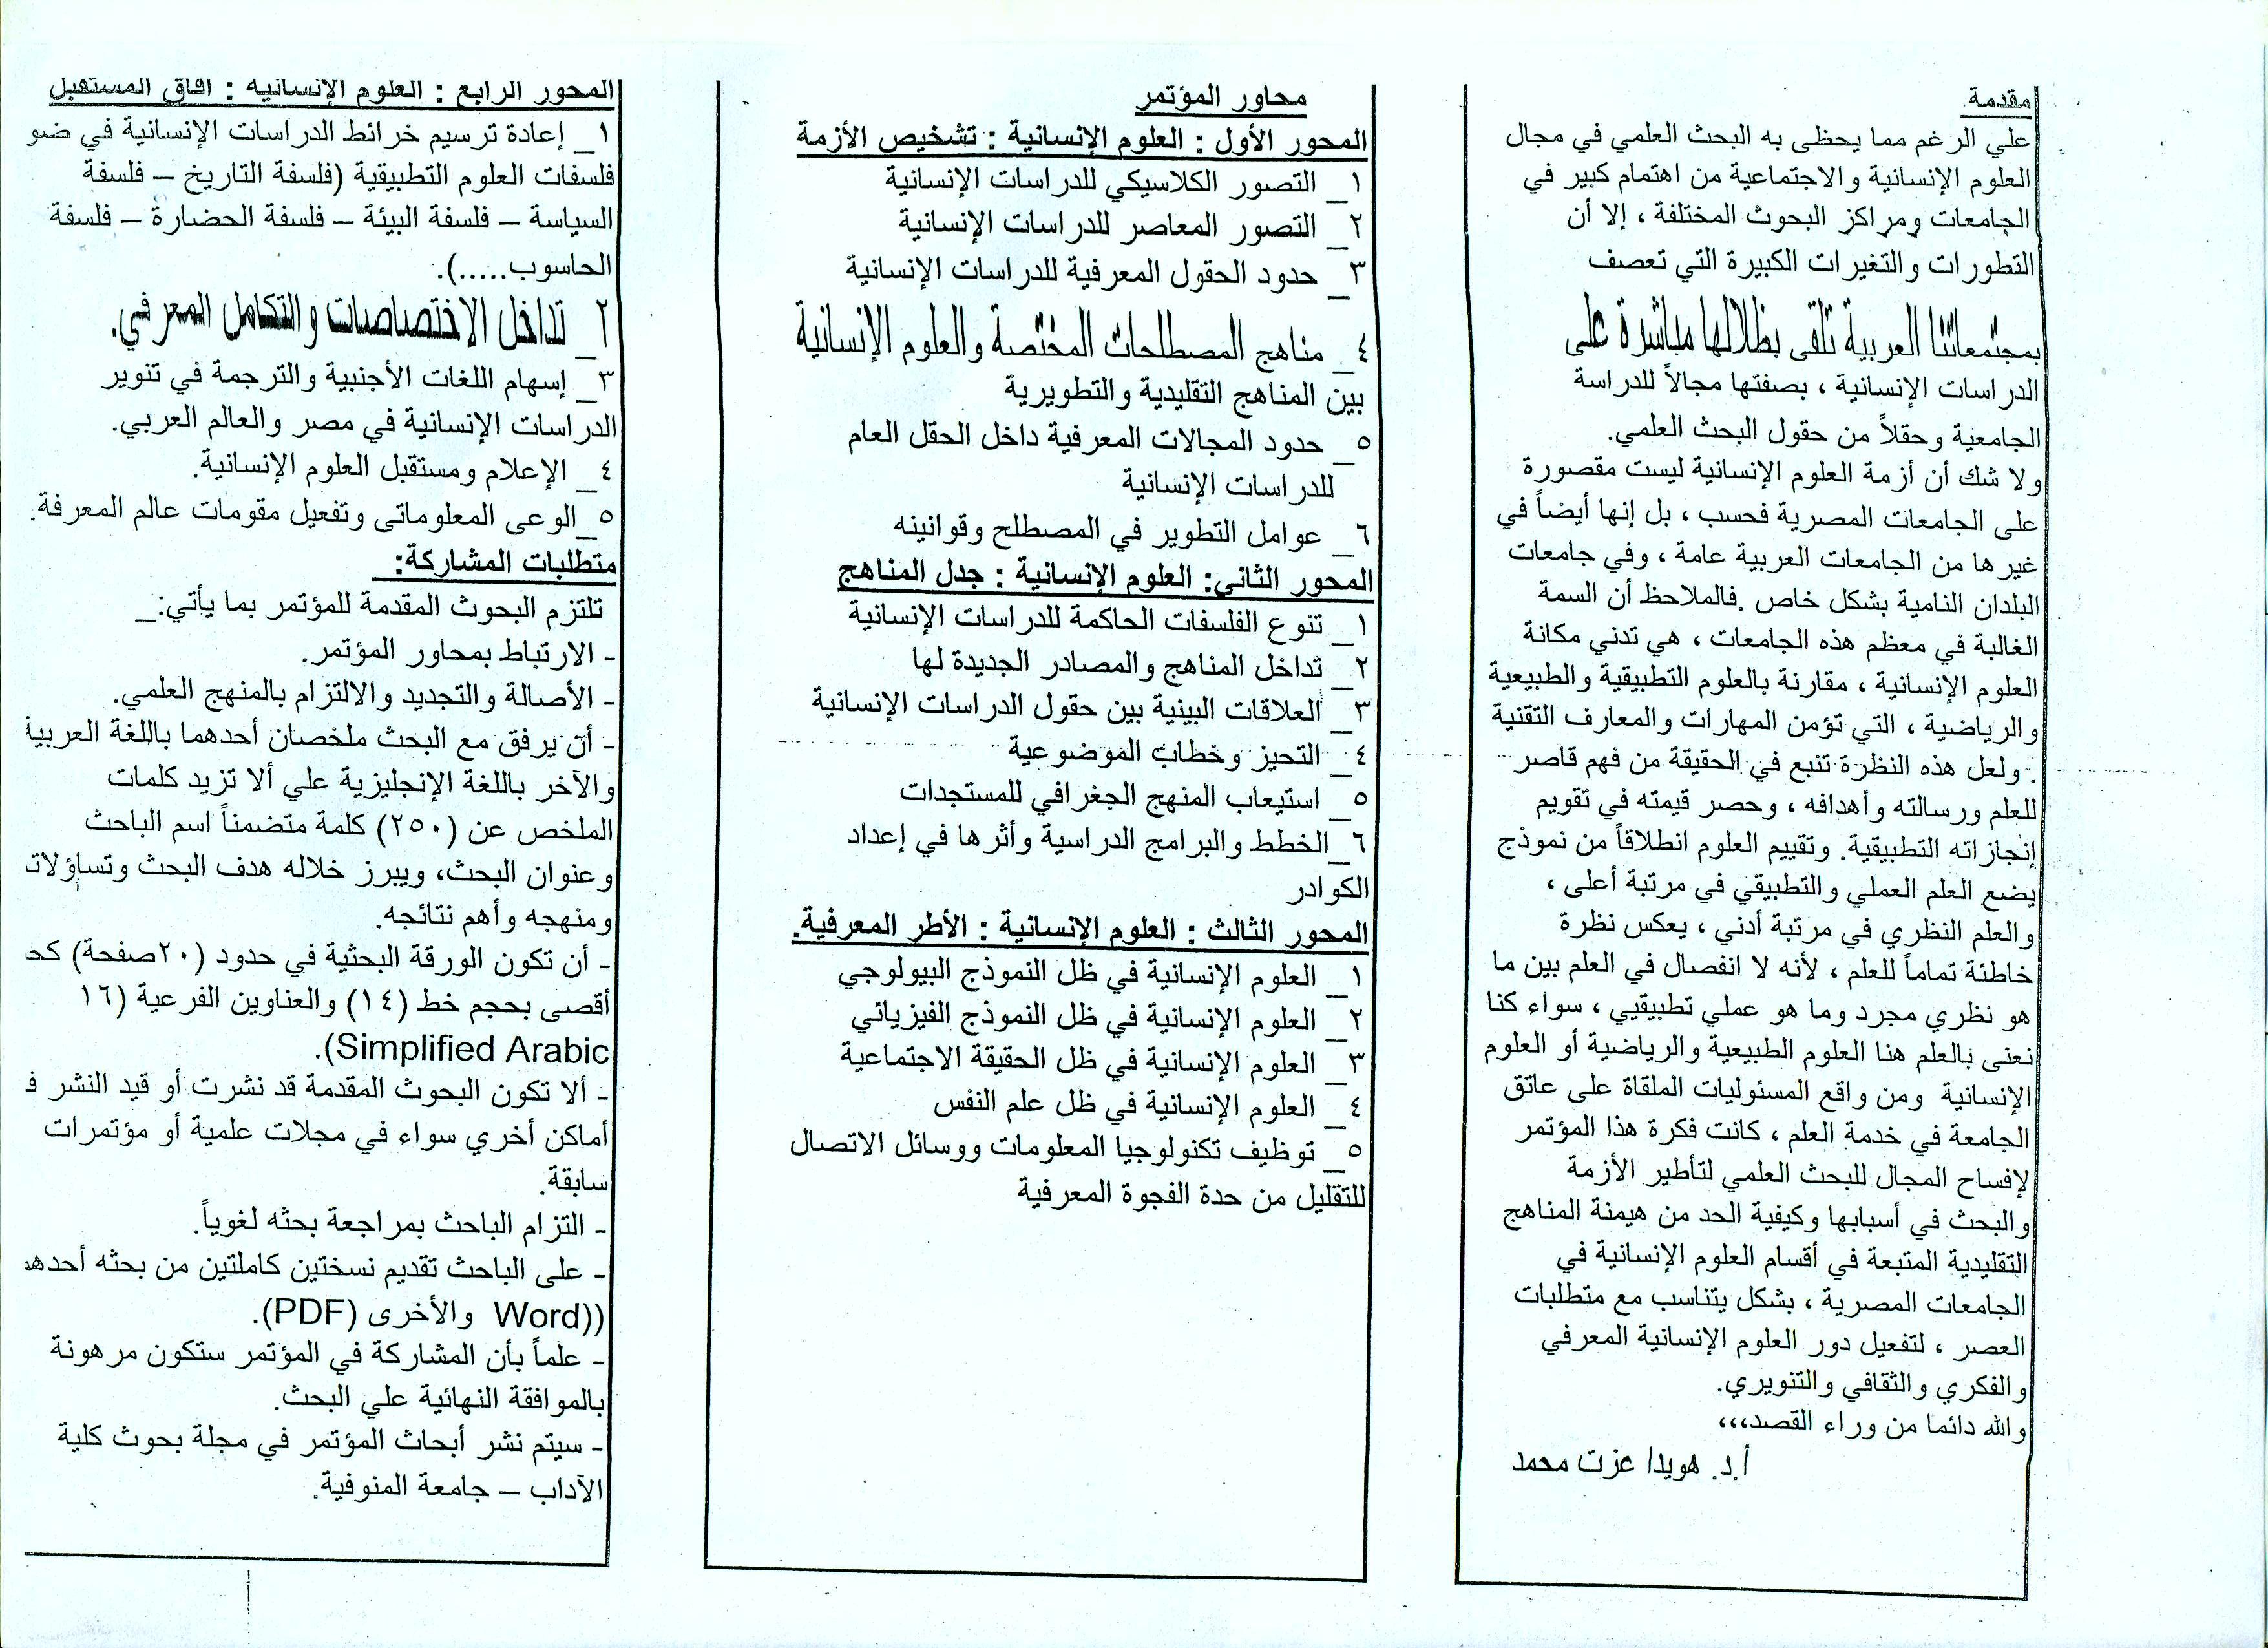 مقدمة
علي الرغم مما يحظى به البحث العلمي في مجال
العلوم الإنسانية والاجتماعية من اهتمام كبير في
الجامعات ومراكز البحوث المختلفة ، إلا أن
التطورات والتغيرات الكبيرة التي تعصف
بمجتمعاتنا العربية تلقى بظلالها مباشرة على
الدراسات الإنسانية ، بصفتها مجالاً للدراسة
الجامعية وحقلاً من حقول البحث العلمي.
ولا شك أن أزمة العلوم الإنسانية ليست مقصورة
على الجامعات المصرية فحسب ، بل إنها أيضاً في
غيرها من الجامعات العربية عامة ، وفي جامعات
البلدان النامية بشكل خاص .فالملاحظ أن السمة
الغالبة في معظم هذه الجامعات ، هي تدني مكانة
العلوم الإنسانية ، مقارنة بالعلوم التطبيقية والطبيعية
والرياضية ، التي تؤمن المهارات والمعارف التقنية
. ولعل هذه النظرة تنبع في الحقيقة من فهم قاصر
للعلم ورسالته وأهدافه ، وحصر قيمته في تقويم
إنجازاته التطبيقية. وتقييم العلوم انطلاقاً من نموذج
يضع العلم العملي والتطبيقي في مرتبة أعلى ،
والعلم النظري في مرتبة أدني ، يعكس نظرة
خاطئة تماماً للعلم ، لأنه لا انفصال في العلم بين ما
هو نظري مجرد وما هو عملي تطبيقيي ، سواء كنا
نعنى بالعلم هنا العلوم الطبيعية والرياضية أو العلوم
الإنسانية ومن واقع المسئوليات الملقاة على عاتق
الجامعة في خدمة العلم ، كانت فكرة هذا المؤتمر
لإفساح المجال للبحث العلمي لتأطير الأزمة
والبحث في أسبابها وكيفية الحد من هيمنة المناهج
التقليدية المتبعة في أقسام العلوم الإنسانية في
الجامعات المصرية ، بشكل يتناسب مع متطلبات
العصر ، لتفعيل دور العلوم الإنسانية المعرفي
والفكري والثقافي والتنويري.
والله دائما من وراء القصد،،،
أ.د. هويدا عزت محمد
محاور المؤتمر
المحور الأول : العلوم الإنسانية : تشخيص الأزمة
١_ التصور الكلاسيكي للدراسات الإنسانية
٢_ التصور المعاصر للدراسات الإنسانية
٣_ حدود الحقول المعرفية للدراسات الإنسانية
٤_ مناهج المصطلحات المختصة والعلوم الإنسانية
بين المناهج التقليدية والتطويرية
٥_ حدود المجالات المعرفية داخل الحقل العام
للدراسات الإنسانية
٦_ عوامل التطوير في المصطلح وقوانينه
المحور الثاني: العلوم الإنسانية : جدل المناهج
١_ تنوع الفلسفات الحاكمة للدراسات الإنسانية
٢_ تداخل المناهج والمصادر الجديدة لها
٣_ العلاقات البينية بين حقول الدراسات الإنسانية
٤_ التحيز وخطاب الموضوعية
٥_ استيعاب المنهج الجغرافي للمستجدات
٦_ الخطط والبرامج الدراسية وأثرها في إعداد
الكوادر
المحور الثالث : العلوم الإنسانية : الأطر المعرفية.
١_ العلوم الإنسانية في ظل النموذج البيولوجي
٢_ العلوم الإنسانية في ظل النموذج الفيزيائي
٣_ العلوم الإنسانية في ظل الحقيقة الاجتماعية
٤_ العلوم الإنسانية في ظل علم النفس
٥_ توظيف تكنولوجيا المعلومات ووسائل الاتصال
للتقليل من حدة الفجوة المعرفية
المحور الرابع : العلوم الإنسانية : افاق المستقبل
١_ إعادة ترسيم خرائط الدراسات الإنسانية في ضو
فلسفات العلوم التطبيقية (فلسفة التاريخ – فلسفة
السياسة – فلسفة البيئة – فلسفة الحضارة – فلسفة
الحاسوب.....).
٢_ تداخل الاختصاصات والتكامل المعرفي.
٣_ إسهام اللغات الأجنبية والترجمة في تنوير
الدراسات الإنسانية في مصر والعالم العربي.
٤_ الإعلام ومستقبل العلوم الإنسانية.
٥_ الوعى المعلوماتى وتفعيل مقومات عالم المعرفة.
متطلبات المشاركة:
تلتزم البحوث المقدمة للمؤتمر بما يأتي:_
- الارتباط بمحاور المؤتمر.
- الأصالة والتجديد والالتزام بالمنهج العلمي.
- أن يرفق مع البحث ملخصان أحدهما باللغة العربية
والآخر باللغة الإنجليزية علي ألا تزيد كلمات
الملخص عن (٢٥٠) كلمة متضمناً اسم الباحث
وعنوان البحث، ويبرز خلاله هدف البحث وتساؤلات
ومنهجه وأهم نتائجه.
- أن تكون الورقة البحثية في حدود (٢٠صفحة) كحد
أقصى بحجم خط (١٤) والعناوين الفرعية (١٦
Simplified Arabic).
- ألا تكون البحوث المقدمة قد نشرت أو قيد النشر ف
أماكن أخري سواء في مجلات علمية أو مؤتمرات
سابقة.
- التزام الباحث بمراجعة بحثه لغوياً.
- على الباحث تقديم نسختين كاملتين من بحثه أحدهم
((Word والأخرى (PDF).
- علماً بأن المشاركة في المؤتمر ستكون مرهونة
بالموافقة النهائية علي البحث.
- سيتم نشر أبحاث المؤتمر في مجلة بحوث كلية
الآداب – جامعة المنوفية.